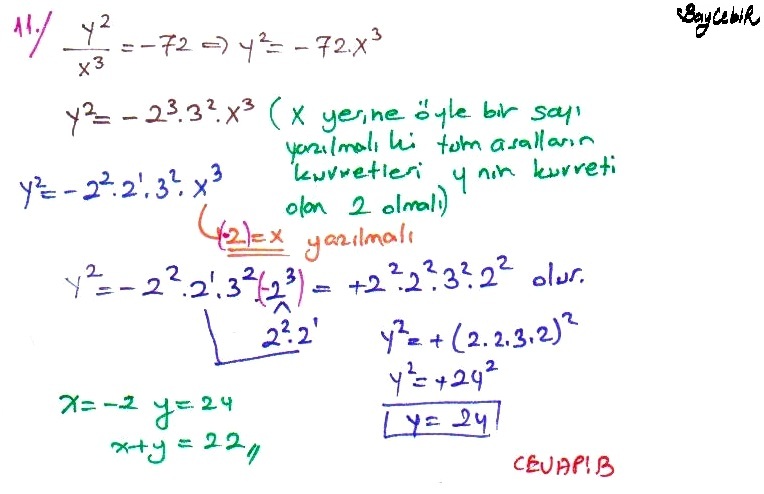 BayCebiR
11./ y²/x³ = -72 ⇒ y² = -72.x³
y² = -2³.3².x³ (x yerine öyle bir sayı
yazılmalı ki tüm asalların
kuvvetleri y nin kuvveti
olan 2 olmalı)
y² = -2².2¹.3².x³
(-2)=x yazılmalı
y² = -2².2¹.3²(-2³) = +2².2².3².2² olur.
2².2¹
y² = +(2.2.3.2)²
y² = +24²
y = 24
x = -2 y = 24
x+y = 22//
CEVAP:B